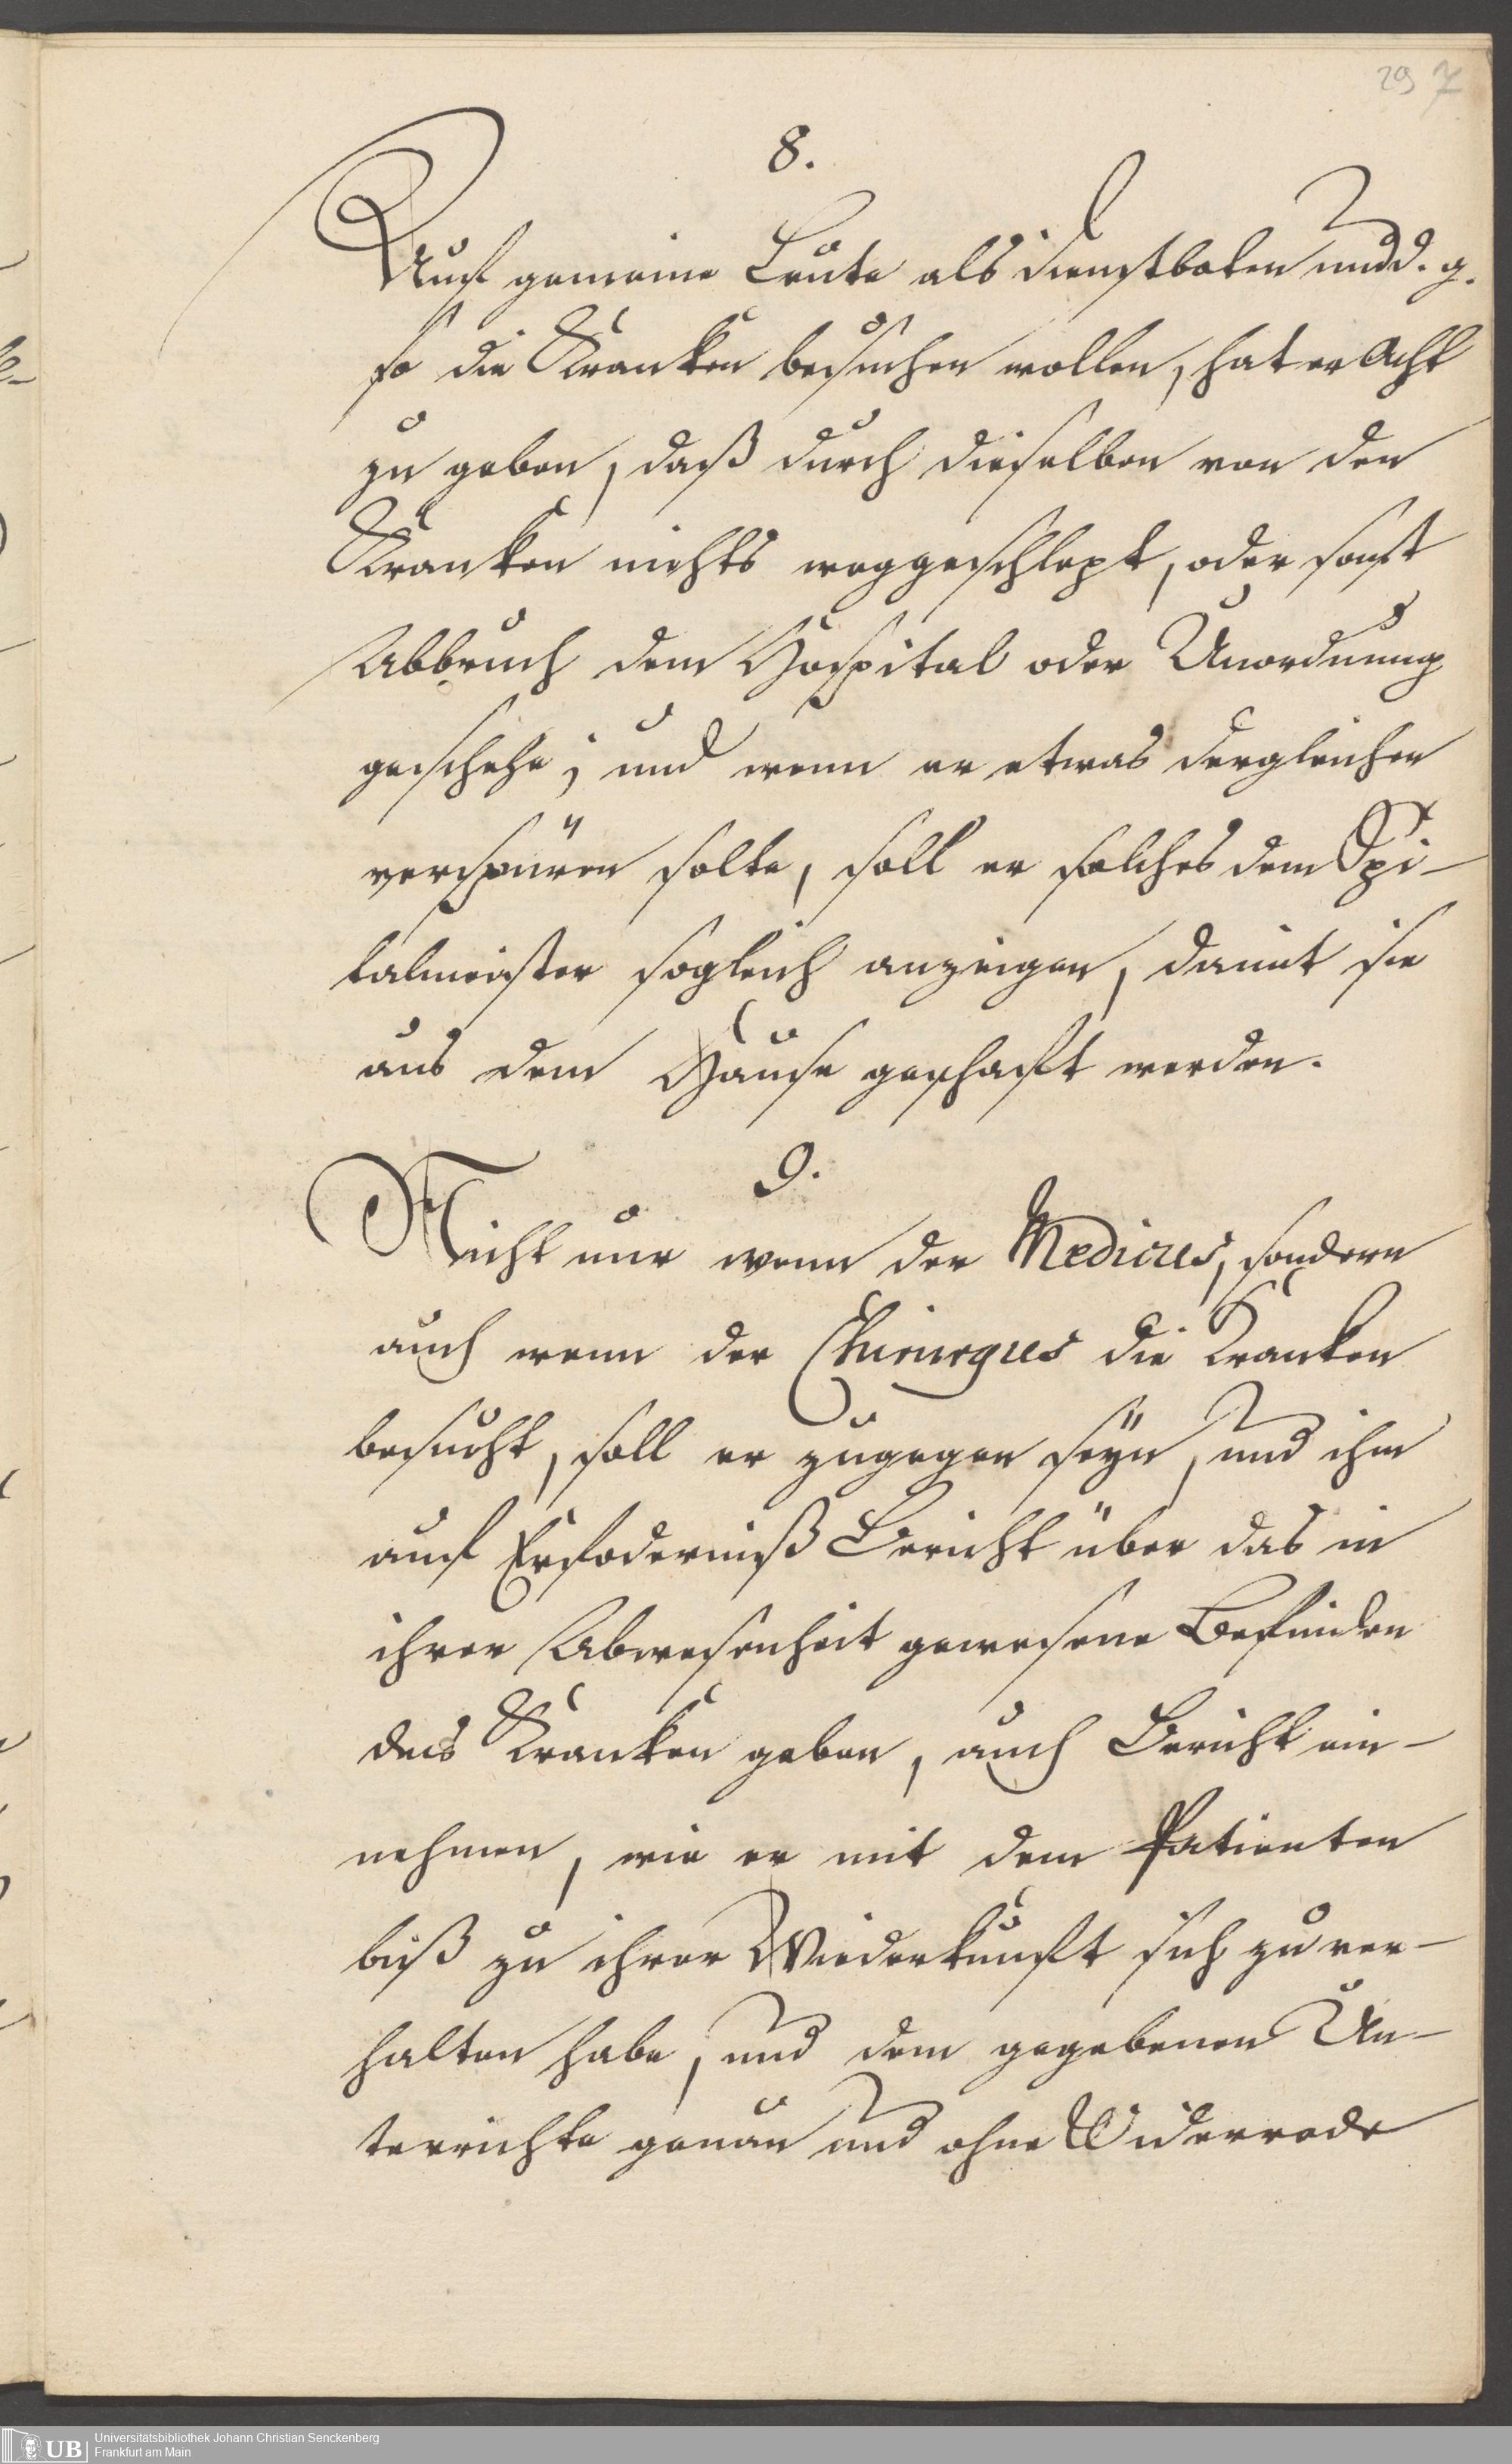 29 7
8.
Auf gemeine Leute als Dienstboten und d. g.
so die Kranken besuchen wollen, hat er Acht
zu geben, daß durch dieselben von den
Kranken nichts weggeschlept, oder sonst
Abbruch dem Hospital oder Unordnung
geschehe; und wenn er etwas dergleichen
verspüren solte, soll er solches dem Spi-
talmeister sogleich anzeigen, damit sie
aus dem Hause geschaft werden.
9.
Nicht nur wenn der Medicus, sondern
auch wenn der Chirurgus die Kranken
besucht, soll er zugegen seyn, und ihm
auf Erfoderniß Bericht über das in
ihrer Abwesenheit gewesene Befinden
des Kranken geben, auch Bericht ein-
nehmen, wie er mit dem Patienten
biß zu ihrer Wiederkunft sich zu ver-
halten habe, und dem gegebenen Un-
terrichte genau und ohne Widerrede
UB
Universitätsbibliothek Johann Christian Senckenberg
Frankfurt am Main